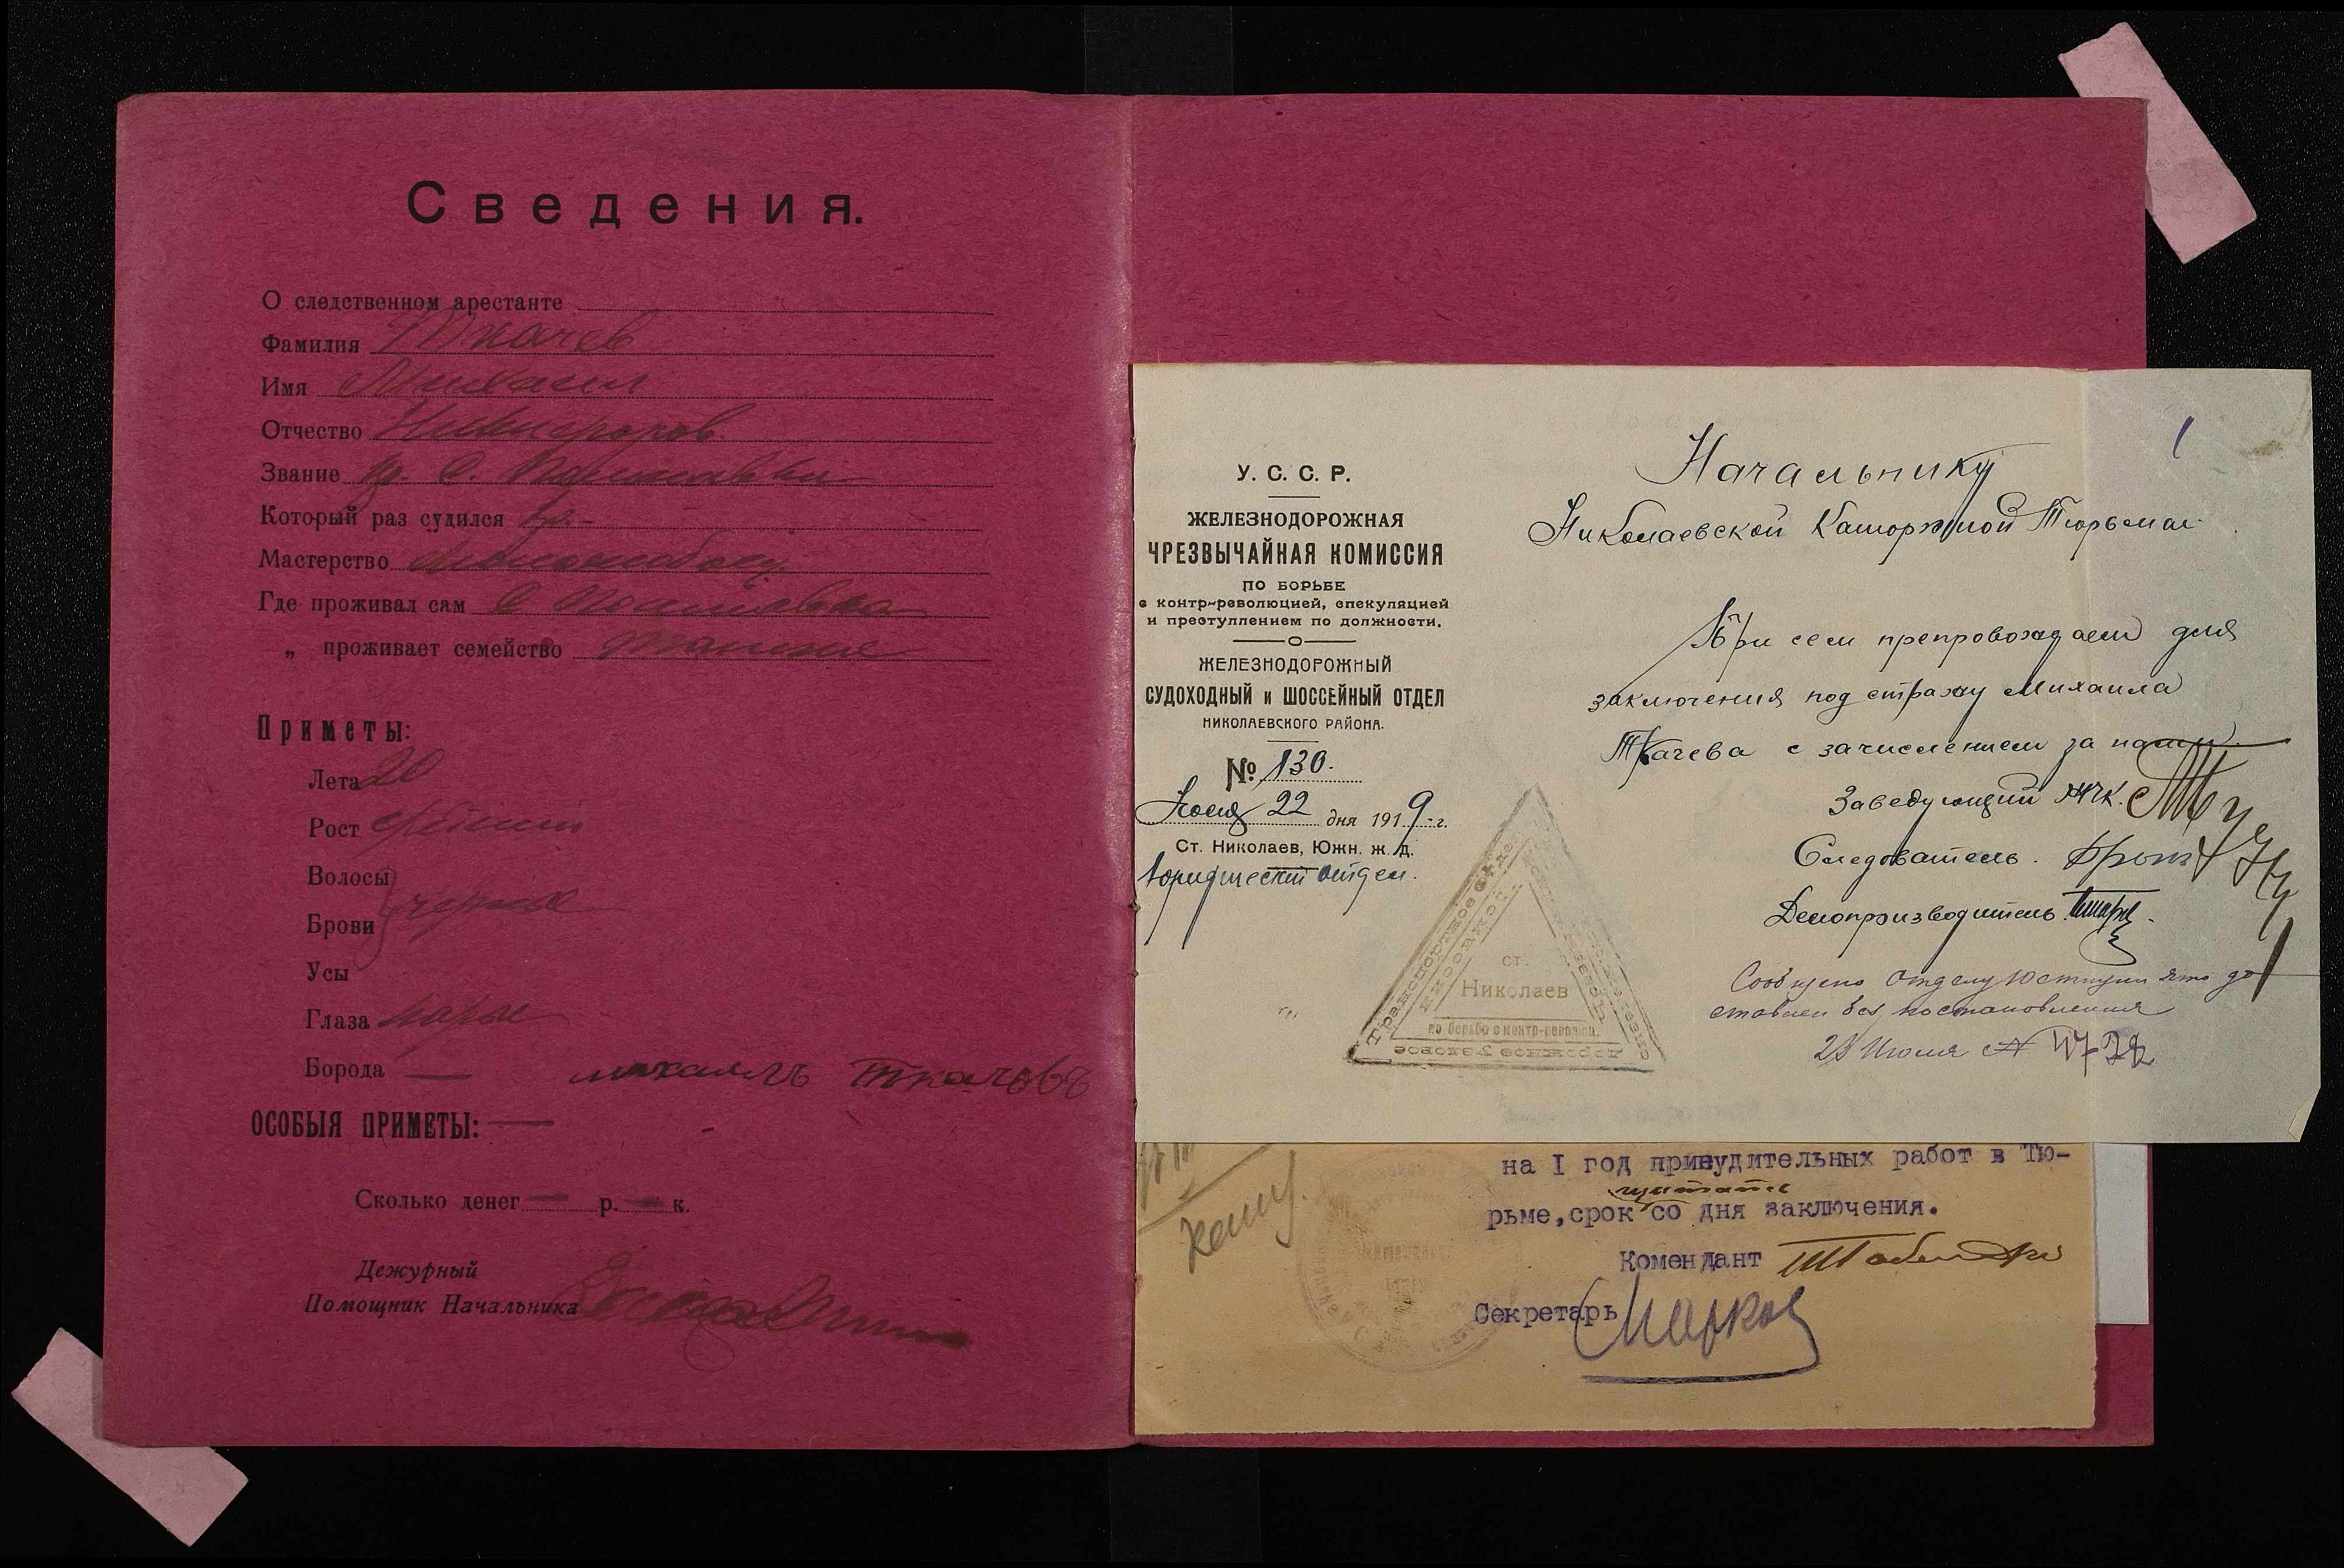 Сведения.
О следственном арестанте
Фамилия Ткачев
Имя Михаил
Отчество Никифоров
Звание кр. с.
Который раз судился
Мастерство
Где проживал сам с.
„ проживает семейство
Приметы:
Лета 20
Рост средний
Волосы
Брови черные
Усы
Глаза карые
Борода —
михаилъ Ткачовъ
ОСОБЫЯ ПРИМЕТЫ: —
Сколько денег — р. — к.
Дежурный
Помощник Начальника
У. С. С. Р.
ЖЕЛЕЗНОДОРОЖНАЯ
ЧРЕЗВЫЧАЙНАЯ КОМИССИЯ
ПО БОРЬБЕ
с контр-революцией, спекуляцией
и преступлением по должности.
ЖЕЛЕЗНОДОРОЖНЫЙ
СУДОХОДНЫЙ и ШОССЕЙНЫЙ ОТДЕЛ
НИКОЛАЕВСКОГО РАЙОНА.
№ 130.
22 дня 1919-г.
Ст. Николаев, Южн. ж. д.
Юридический отдел.
1
Начальнику
Николаевской Каторжной Тюрьмы
При сем препровождаем для
заключения под стражу Михаила
Ткачева с зачислением за нами.
Заведующий ЖЧК.
Следователь.
Делопроизводитель.
Сообщено Отделу Юстиции что до
ставлен без постановления
23 Июля №
Транспортное
ст.
Николаев
по борьбе с контр-революц.
на I год принудительных работ в Тю-
считать
рьме, срок со дня заключения.
Комендант
Секретарь Марков